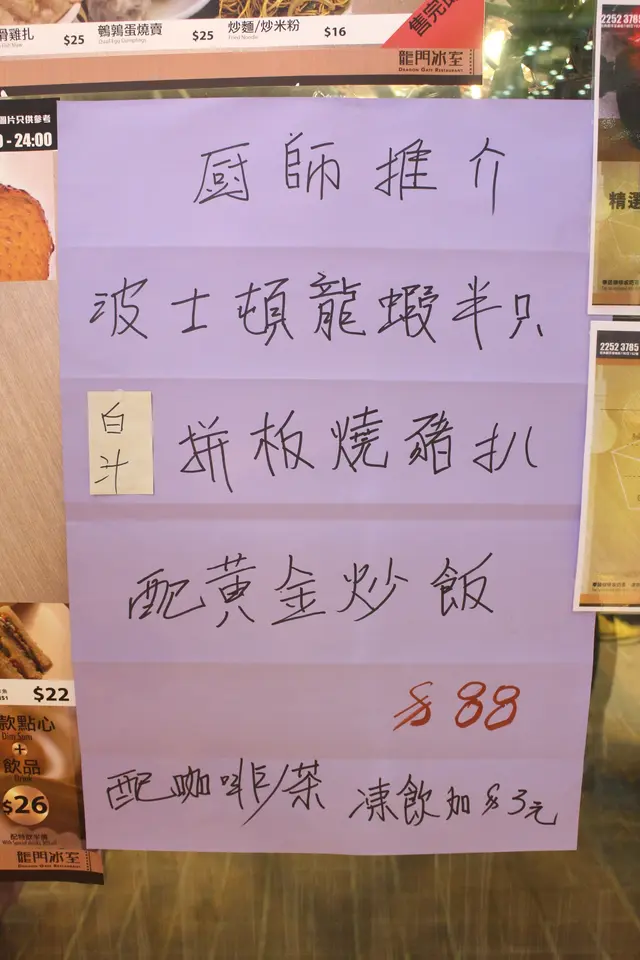 骨雞扎
$25
鵪鶉蛋燒賣
$25
炒麵/炒米粉
Fried Noodle
$16
售完即
龍門冰室
DRAGON GATE RESTAURANT
圖片只供參考
- 24:00
廚師推介
波士頓龍蝦半只
白汁
拼板燒豬扒
配黃金炒飯
$88
配咖啡/茶 凍飲加$3元
$22
款點心
Dim Sum
+
飲品
Drink
$26
龍門冰室
DRAGON GATE RESTAURANT
2252 3785
精選
2252 3785